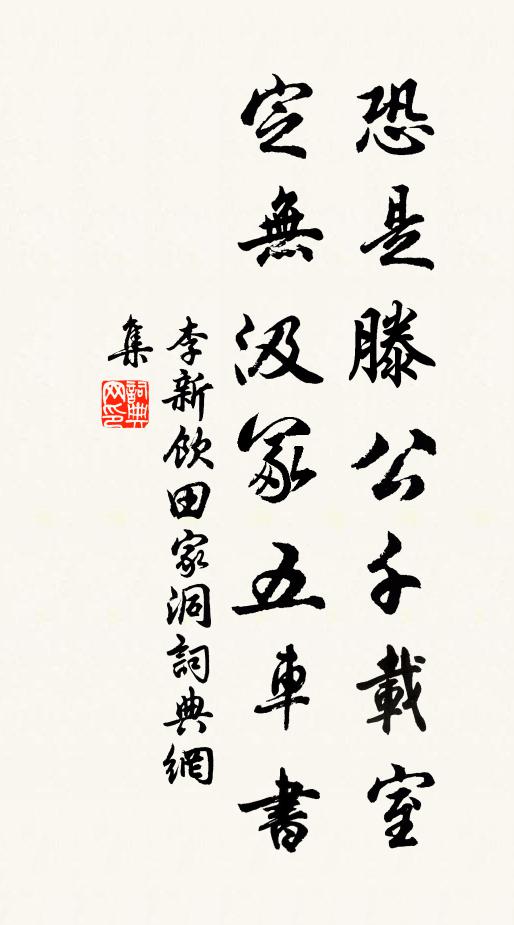 恐是滕公千載室
定無汲冢五車書
李新飲田家洞詞典網
集
詞典
网印